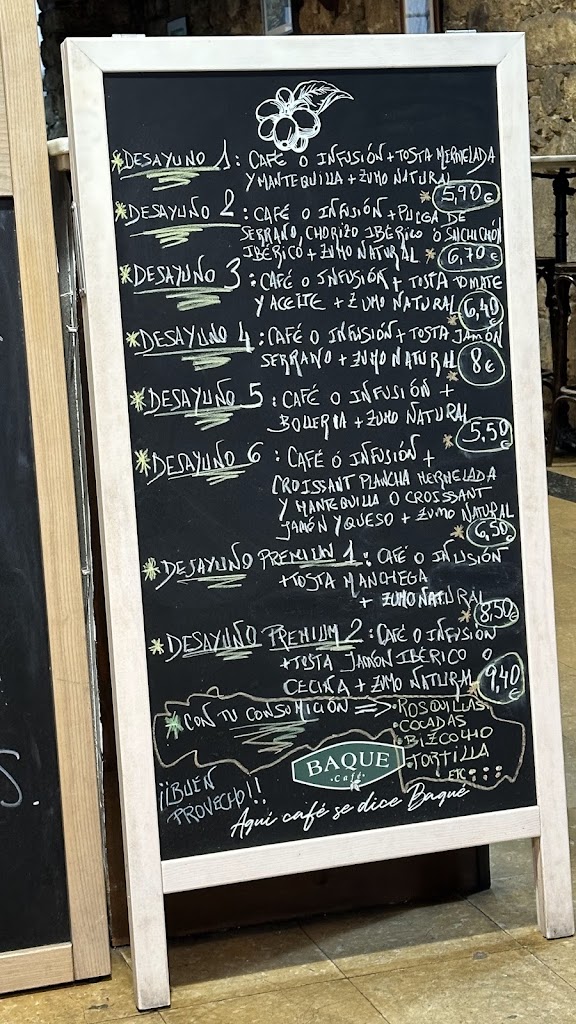 *DESAYUNO 1: CAFÉ O INFUSIÓN + TOSTA MERMELADA
Y MANTEQUILLA + ZUMO NATURAL
*5,90€
*DESAYUNO 2: CAFÉ O INFUSIÓN + PULGA DE
SERRANO, CHORIZO IBÉRICO O SALCHICHÓN
IBÉRICO + ZUMO NATURAL *6,70€
*DESAYUNO 3: CAFÉ O INFUSIÓN + TOSTA TOMATE
Y ACEITE + ZUMO NATURAL 6,40€
*DESAYUNO 4: CAFÉ O INFUSIÓN + TOSTA JAMÓN
SERRANO + ZUMO NATURAL *8€
*DESAYUNO 5: CAFÉ O INFUSIÓN +
BOLLERIA + ZUMO NATURAL
*5,50€
*DESAYUNO 6: CAFÉ O INFUSIÓN +
CROISSANT PLANCHA MERMELADA
Y MANTEQUILLA O CROISSANT
JAMÓN Y QUESO + ZUMO NATURAL
*6,50€
*DESAYUNO PREMIUM 1: CAFÉ O INFUSIÓN
+ TOSTA MANCHEGA
+ ZUMO NATURAL
*8,50€
*DESAYUNO PREMIUM 2: CAFÉ O INFUSIÓN
+ TOSTA JAMÓN IBÉRICO O
CECINA + ZUMO NATURAL *9,40€
*CON TU CONSUMICIÓN => ·ROSQUILLAS
·COCADAS
·BIZCOCHO
·TORTILLA
ETC...
BAQUE
·Café·
¡¡BUEN
PROVECHO!!
Aquí café se dice Baqué
S.